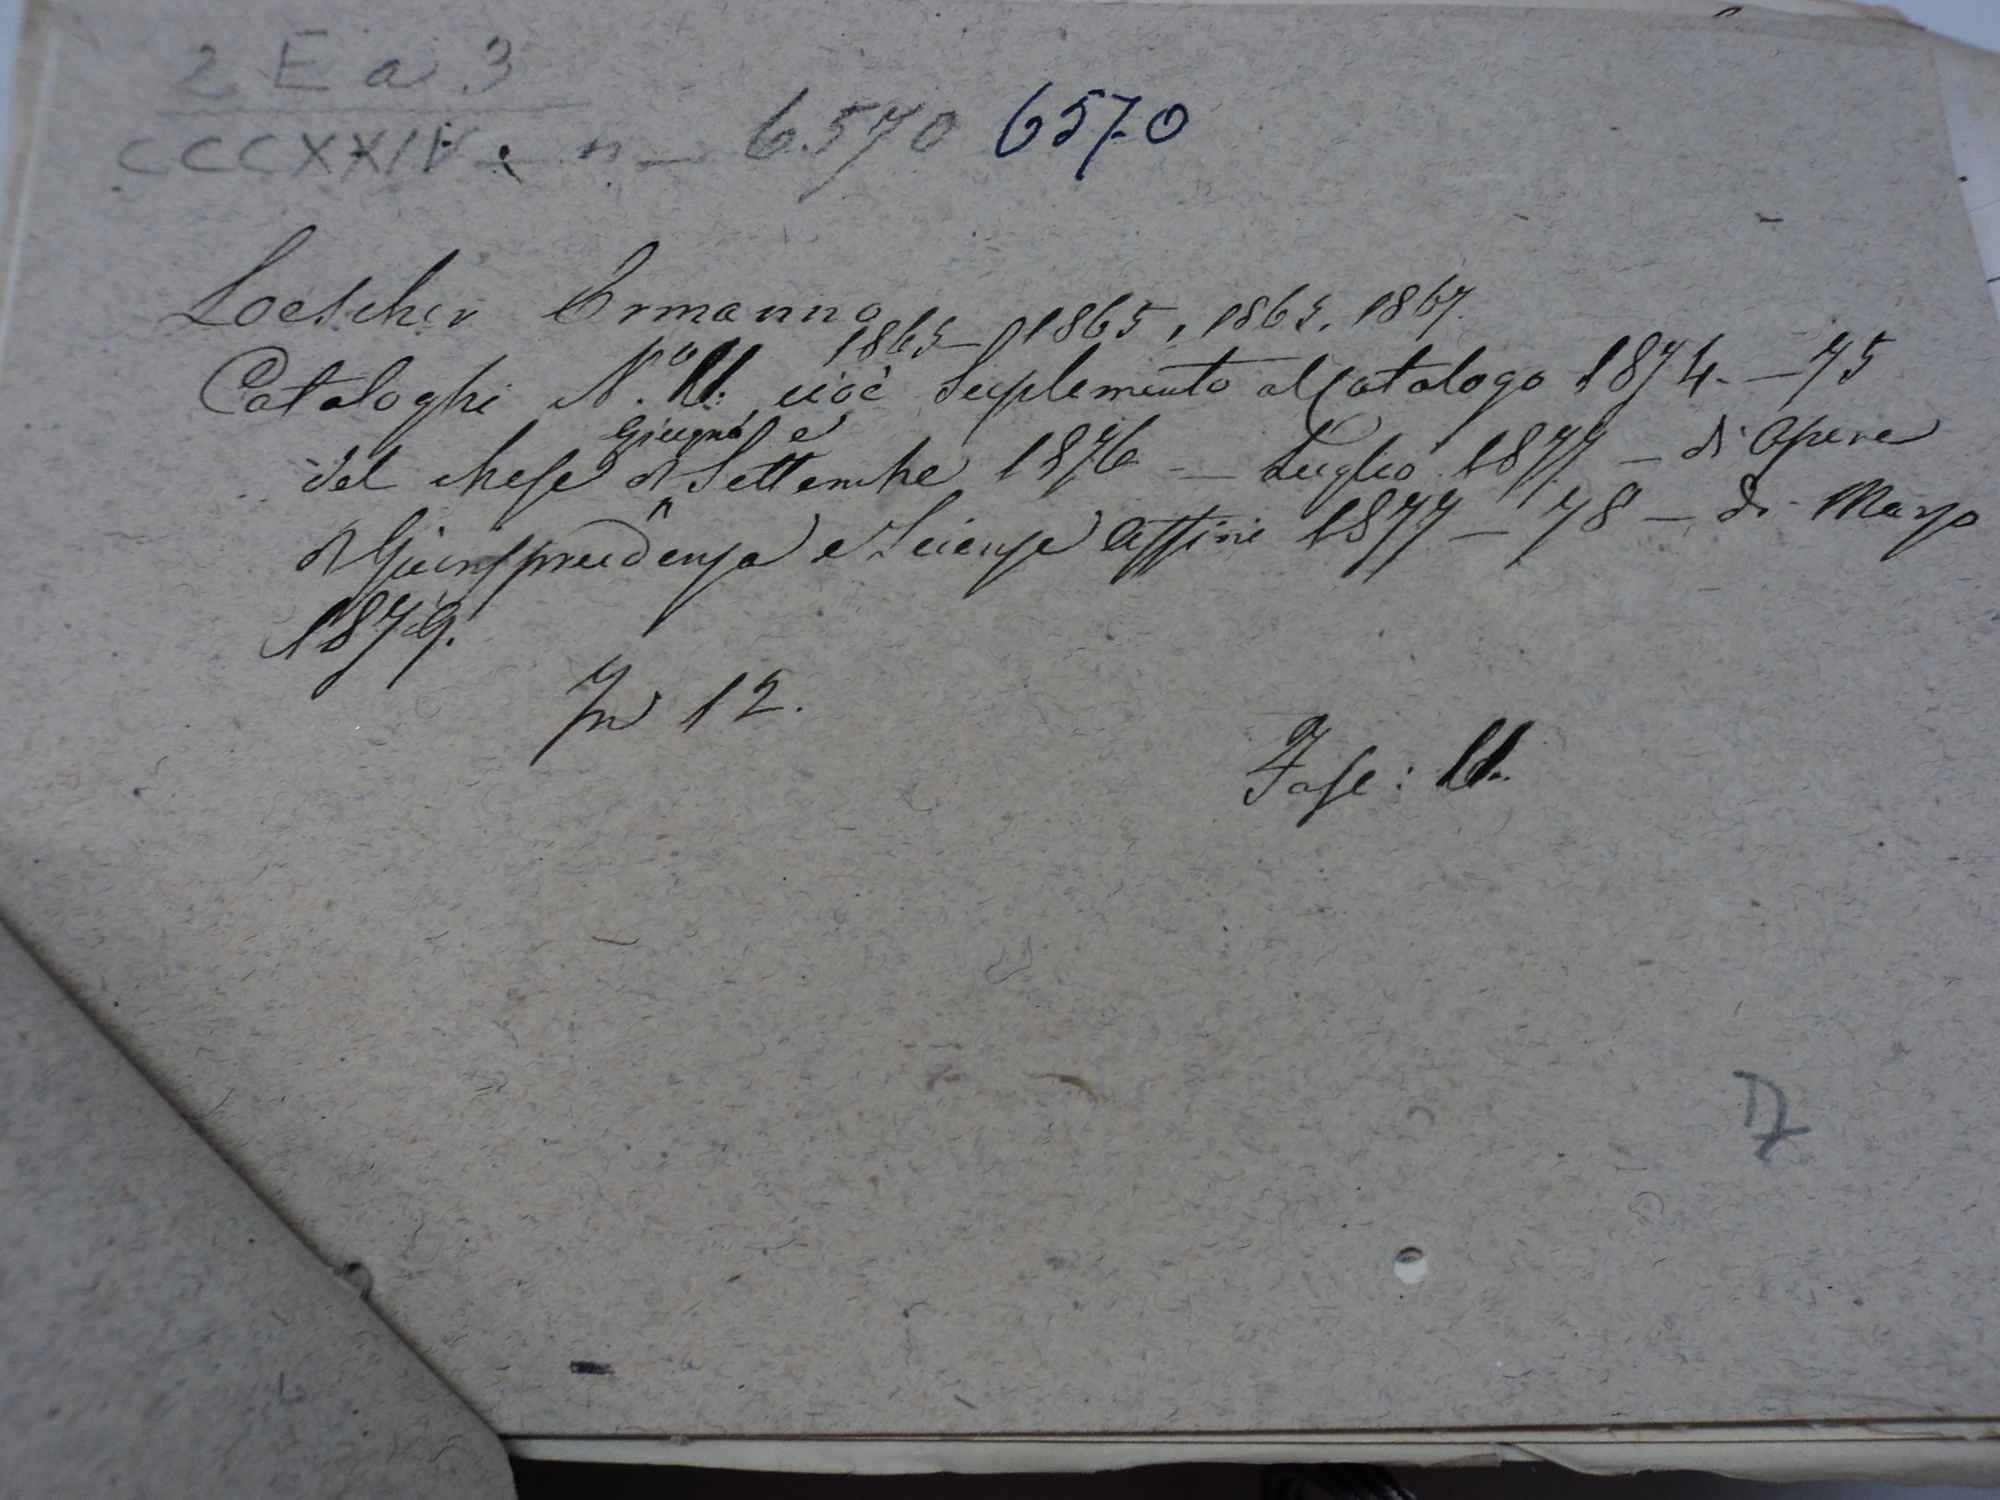 2 E a 3
CCCXXIV - n - 6.570 6570
Loescher Ermanno
1865 - 1865, 1865, 1867.
Cataloghi N.° 11. cioè Suplemento al Catalogo 1874 - 75
Giugno, e
del Mese di Settembre 1876 - Luglio 1877 - di Opere
di Giurisprudenza e Scienze Affini 1877 - 78 - di Marzo
1879.
In 12.
Fasc: 11.